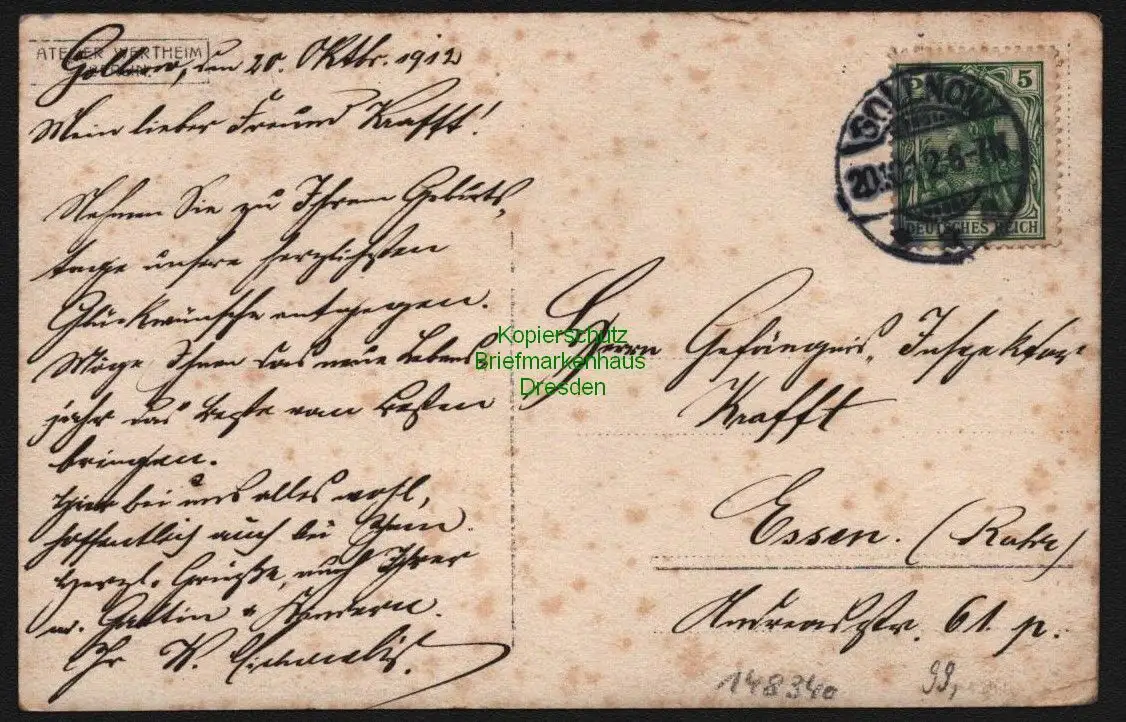 ATELIER WERTHEIM
Gollnow, den 20. Oktbr. 1912
Mein lieber Freund Krafft!
Nehmen Sie zu Ihrem Geburts-
tage unsere herzlichsten
Glückwünsche entgegen.
Möge Ihnen das neue Lebens
jahr das Beste vom Besten
bringen.
Hier bei uns alles wohl,
hoffentlich auch bei Ihnen.
Herzl. Grüße, auch Ihrer
w. Gattin u Kindern.
Ihr
5
DEUTSCHES REICH
GOLLNOW
20.10.12.6-7N
Herrn Gefängnis-Inspektor
Krafft
Essen. (Ruhr)
Andreasstr. 61 p.
Kopierschutz
Briefmarkenhaus
Dresden
148340
99,